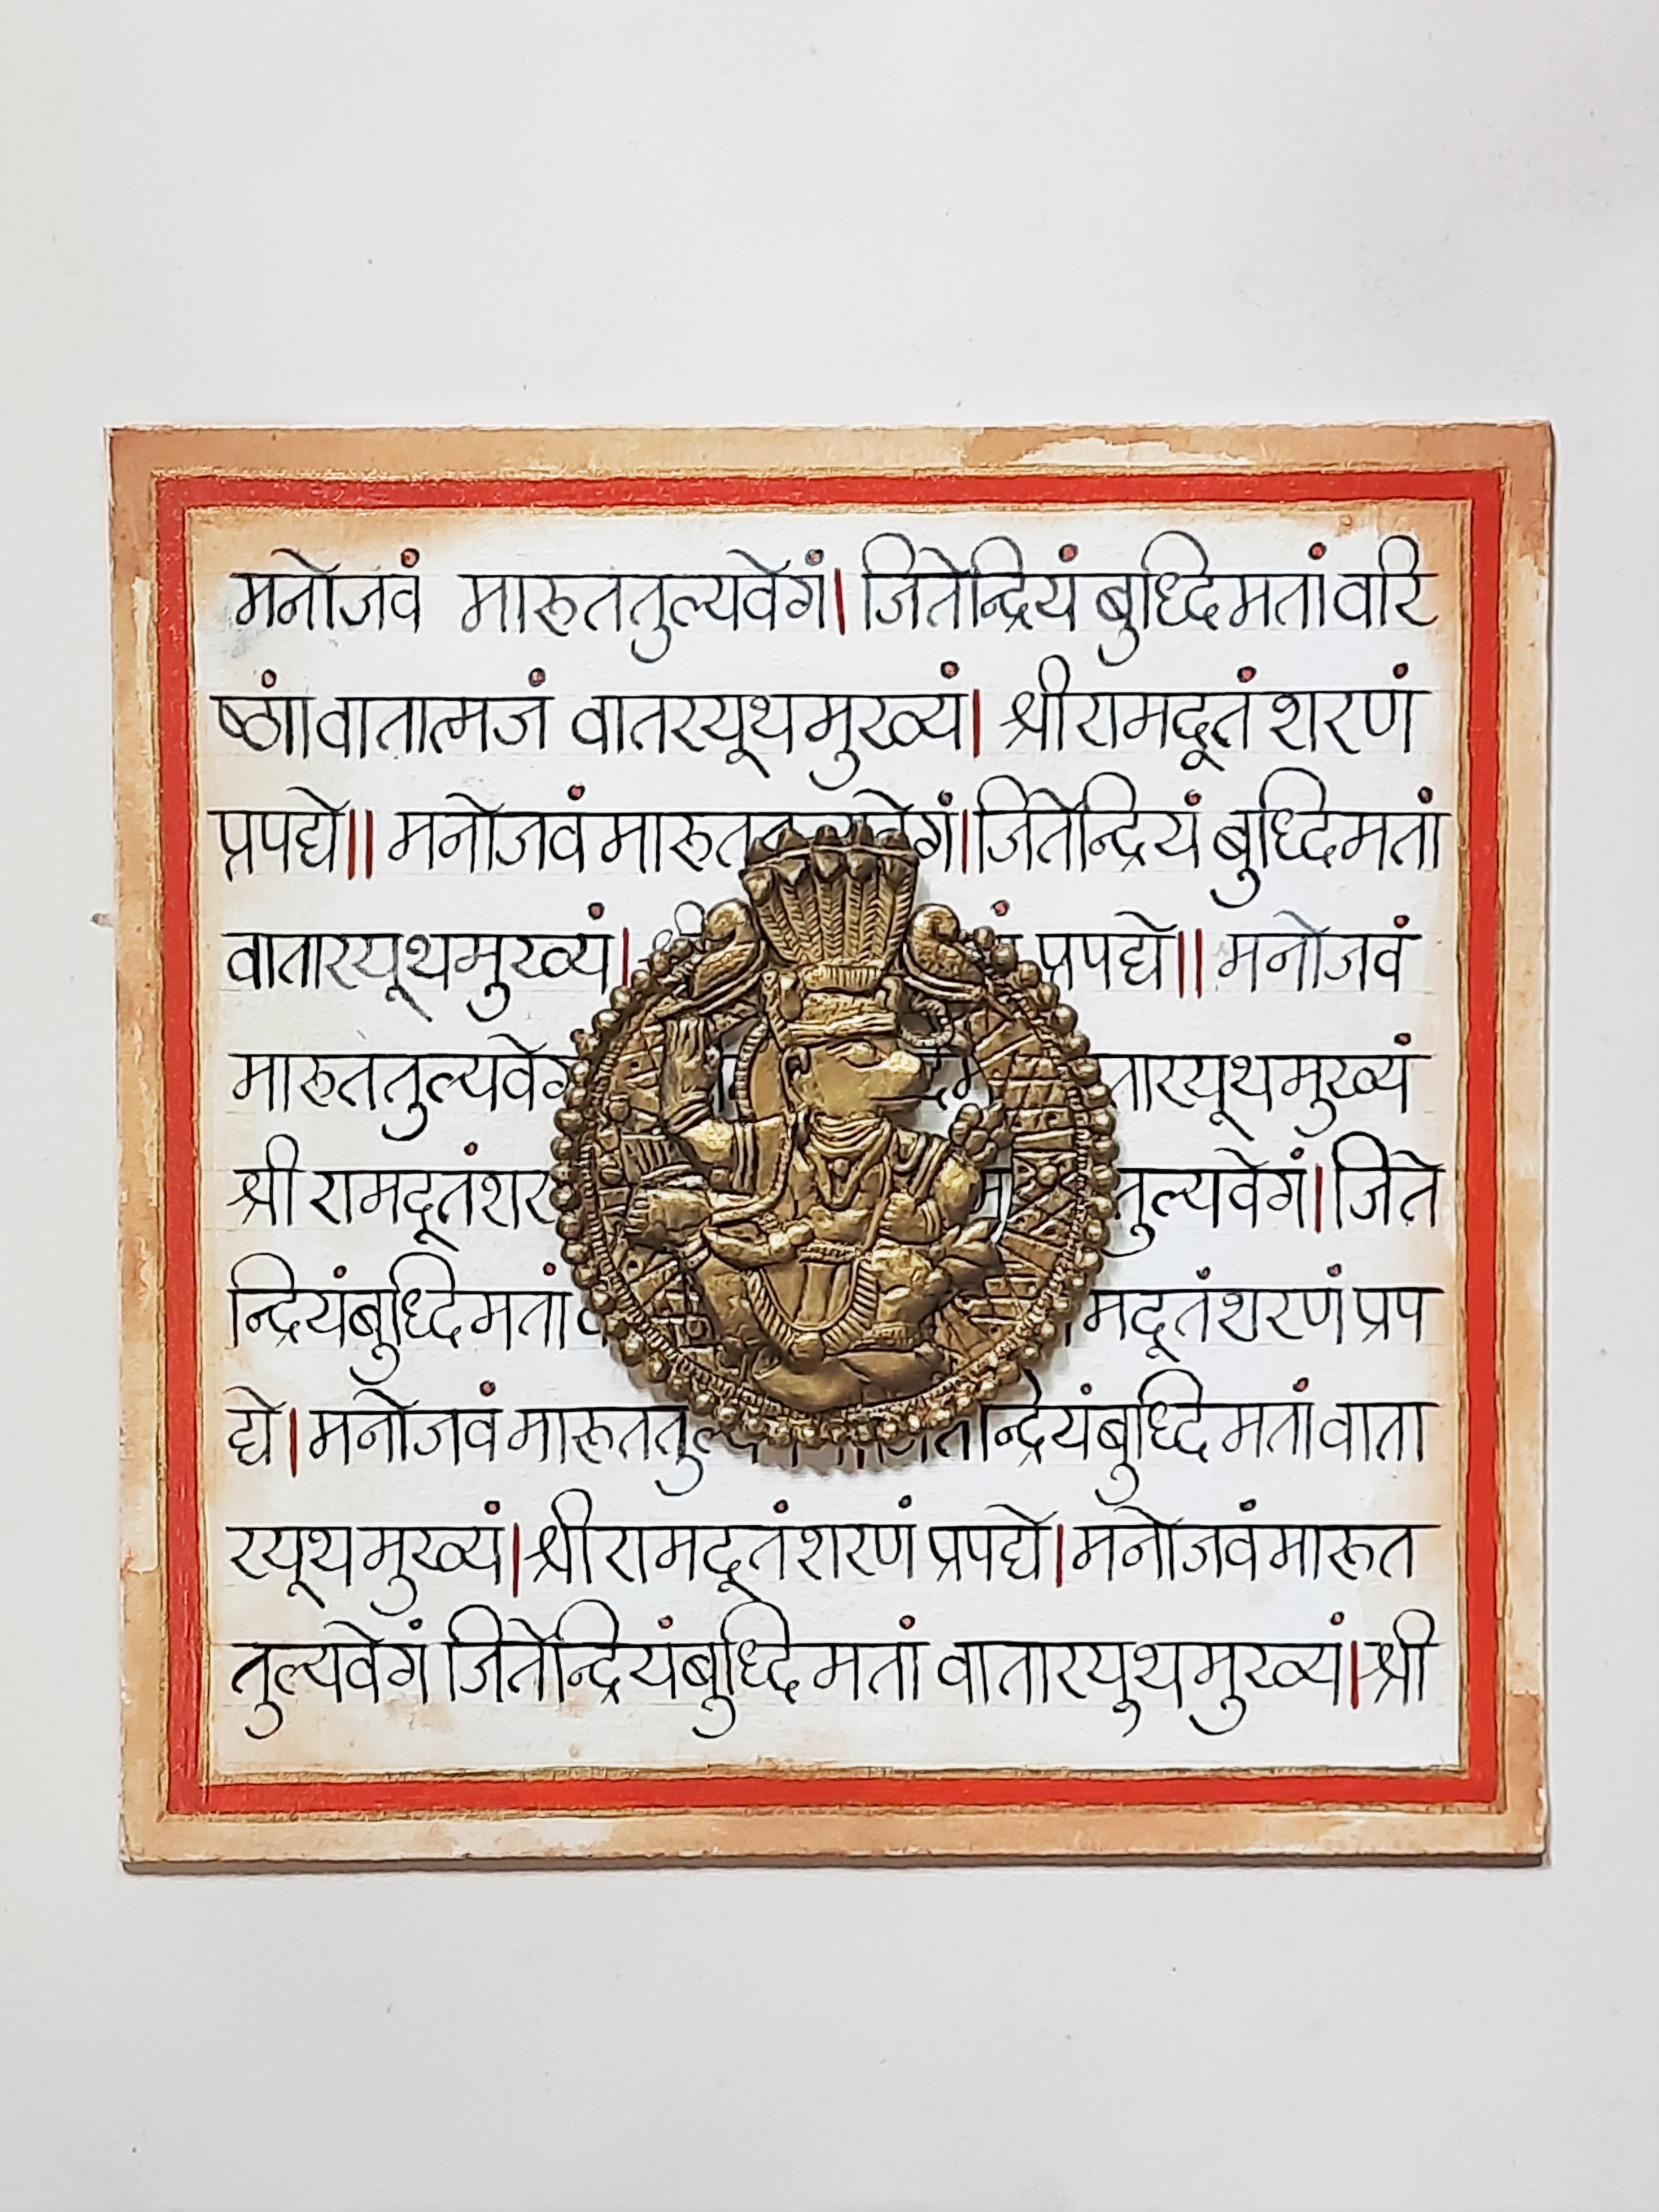 मनोजवं मारूततुल्यवेगं| जितेन्द्रियं बुध्दिमतां वरि
ष्ठां। वातात्मजं वातरयूथमुख्यं| श्रीरामदूतं शरणं
प्रपद्ये|| मनोजवं मारूत वेगं| जितेन्द्रियं बुध्दिमतां
वातारयूथमुख्यं| प्रपद्ये|| मनोजवं
मारूततुल्यवेग तारयूथमुख्यं
श्री रामदूतं शर तुल्यवेगं| जिते
न्द्रियं बुध्दिमतां मदूतं शरणं प्रप
द्ये| मनोजवं मारूततु न्द्रियं बुध्दिमतां वाता
रयूथमुख्यं| श्रीरामदूतं शरणं प्रपद्ये| मनोजवं मारूत
तुल्यवेगं जितेन्द्रियं बुध्दिमतां वातारयुथमुख्यं| श्री